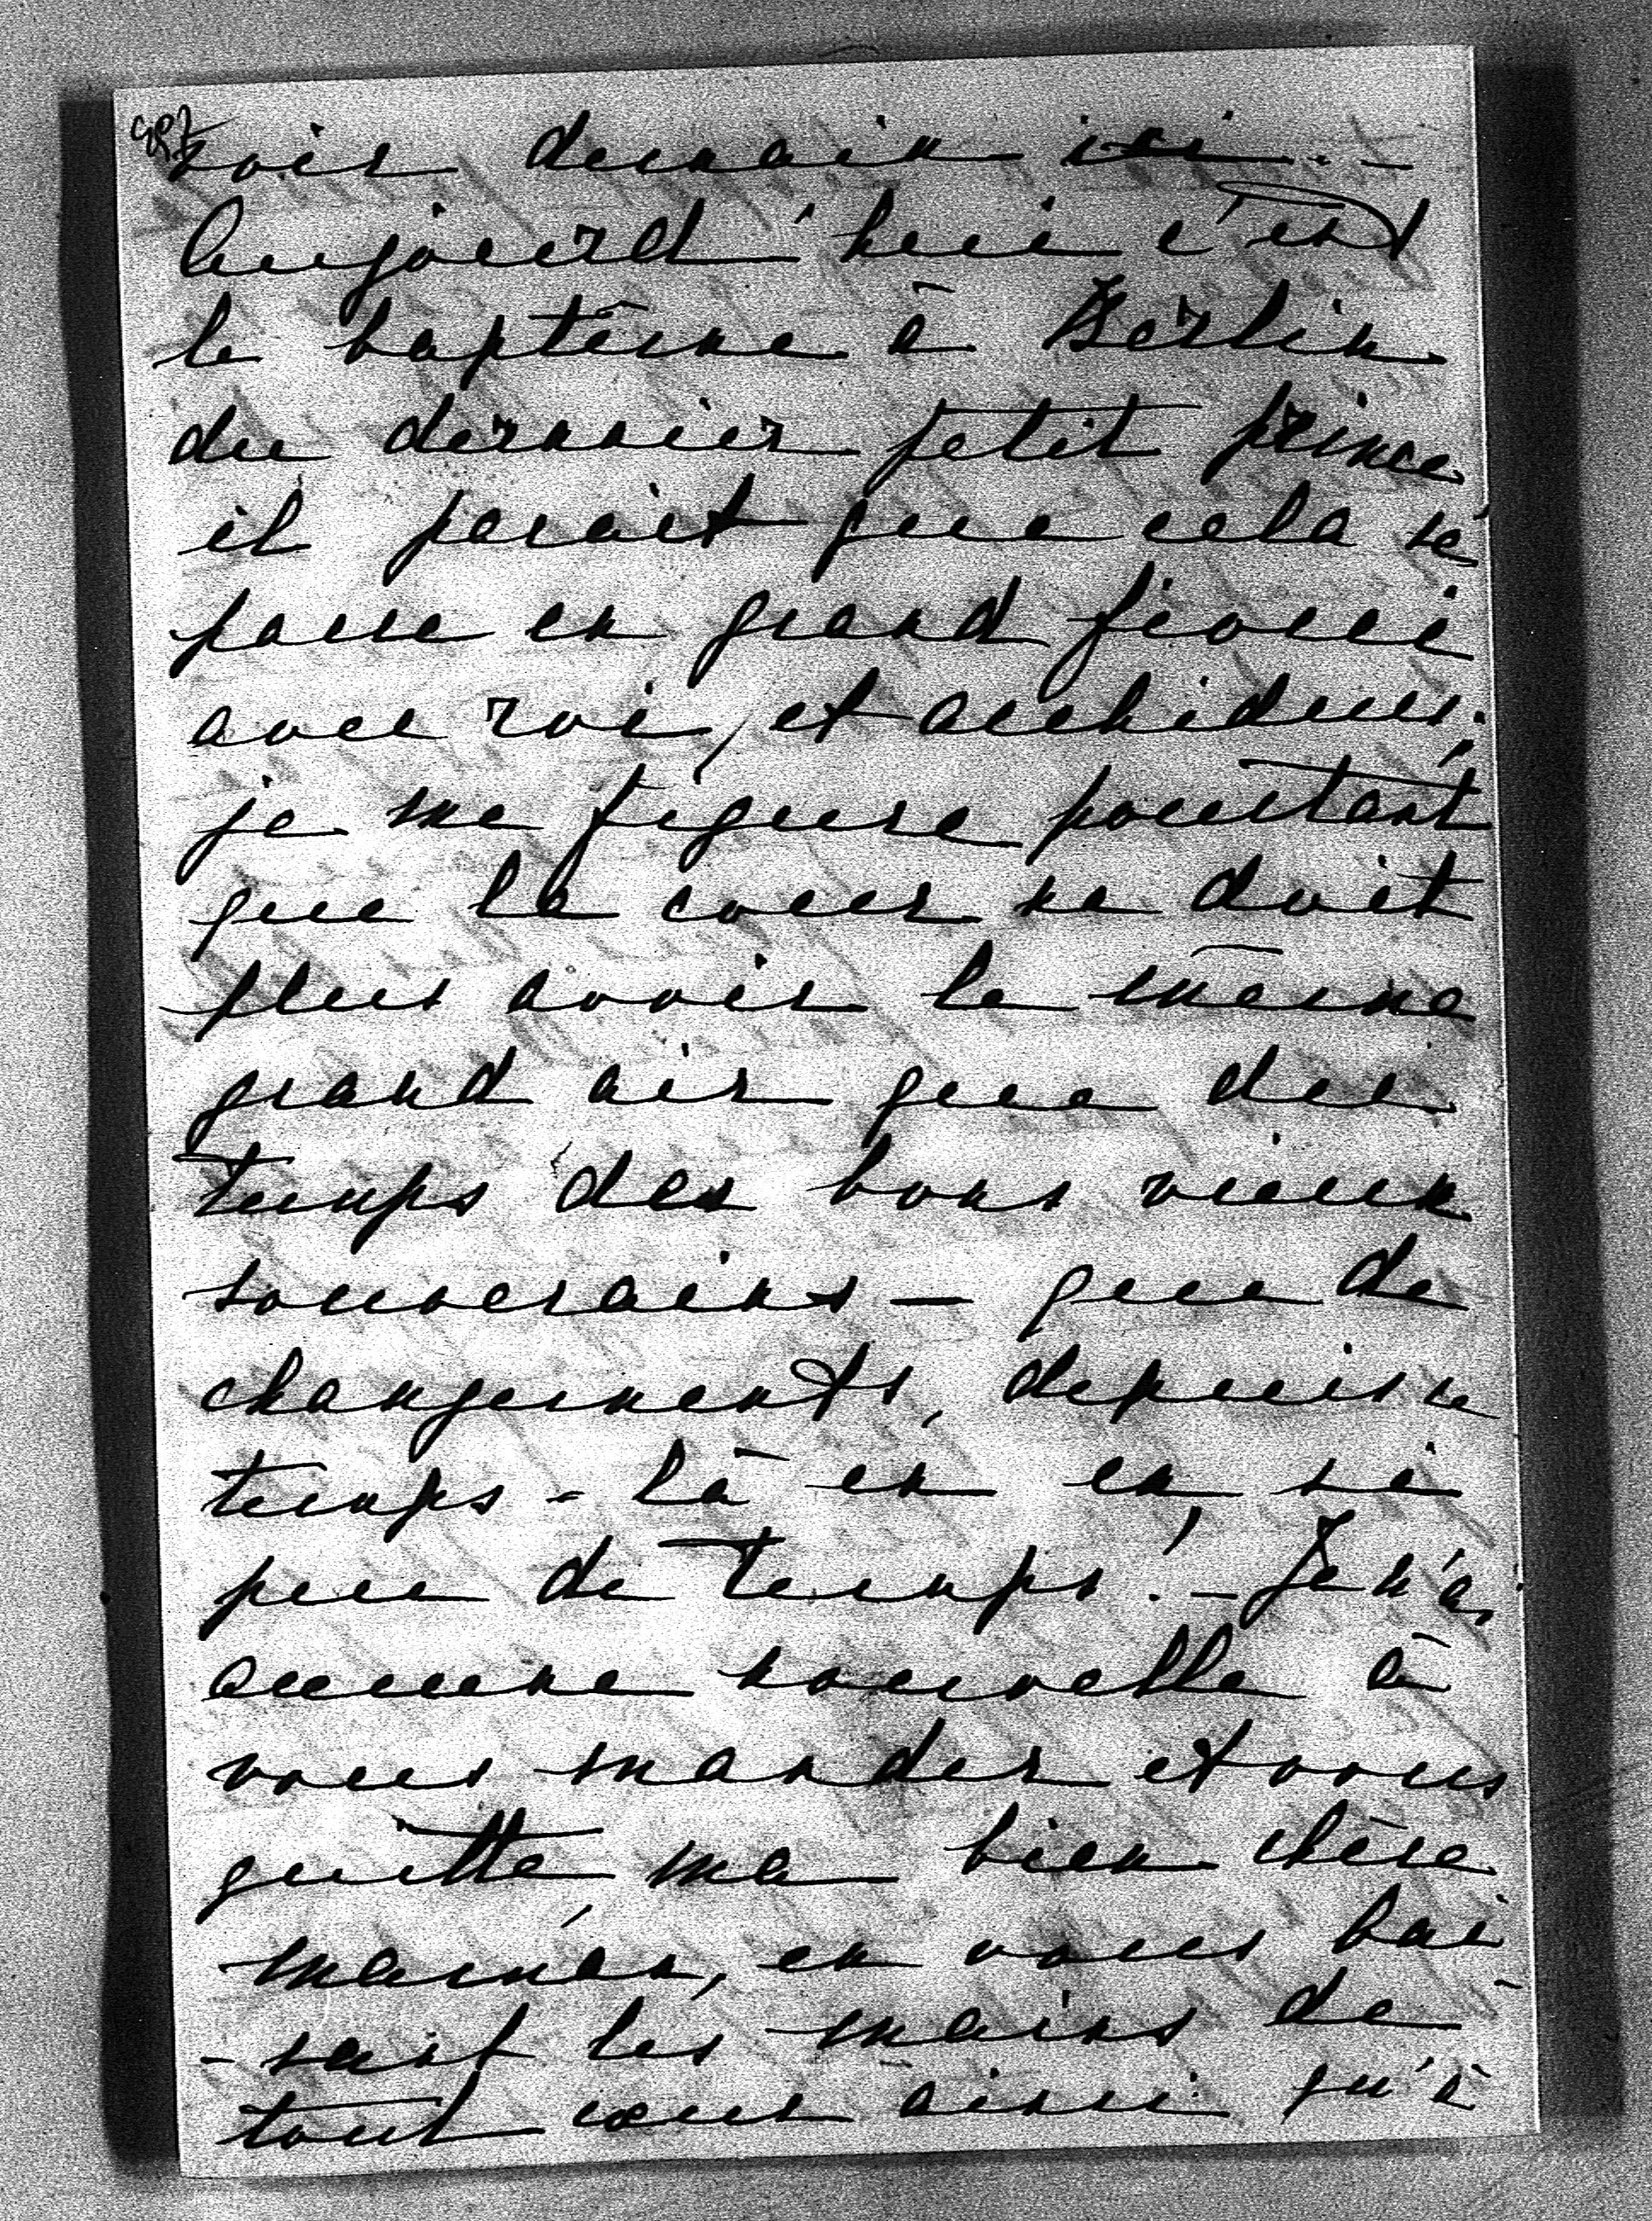 voir demain ici. -
Aujourd'hui c'est
le baptême à Berlin
du dernier petit prince
il parait que cela se
passe en grand fiocci
avec roi, et archiducs.
je me figure pourtant
que la cour ne doit
plus avoir le même
grand air que du
temps des bons vieux
souverains — que de
changements, depuis ce
temps-là en en si
peu de temps! - Je n'ai
aucune nouvelle à
vous mander et vous
quitte ma bien chère
maman, en vous bai
-sant les mains de
tout cœur ainsi qu'à